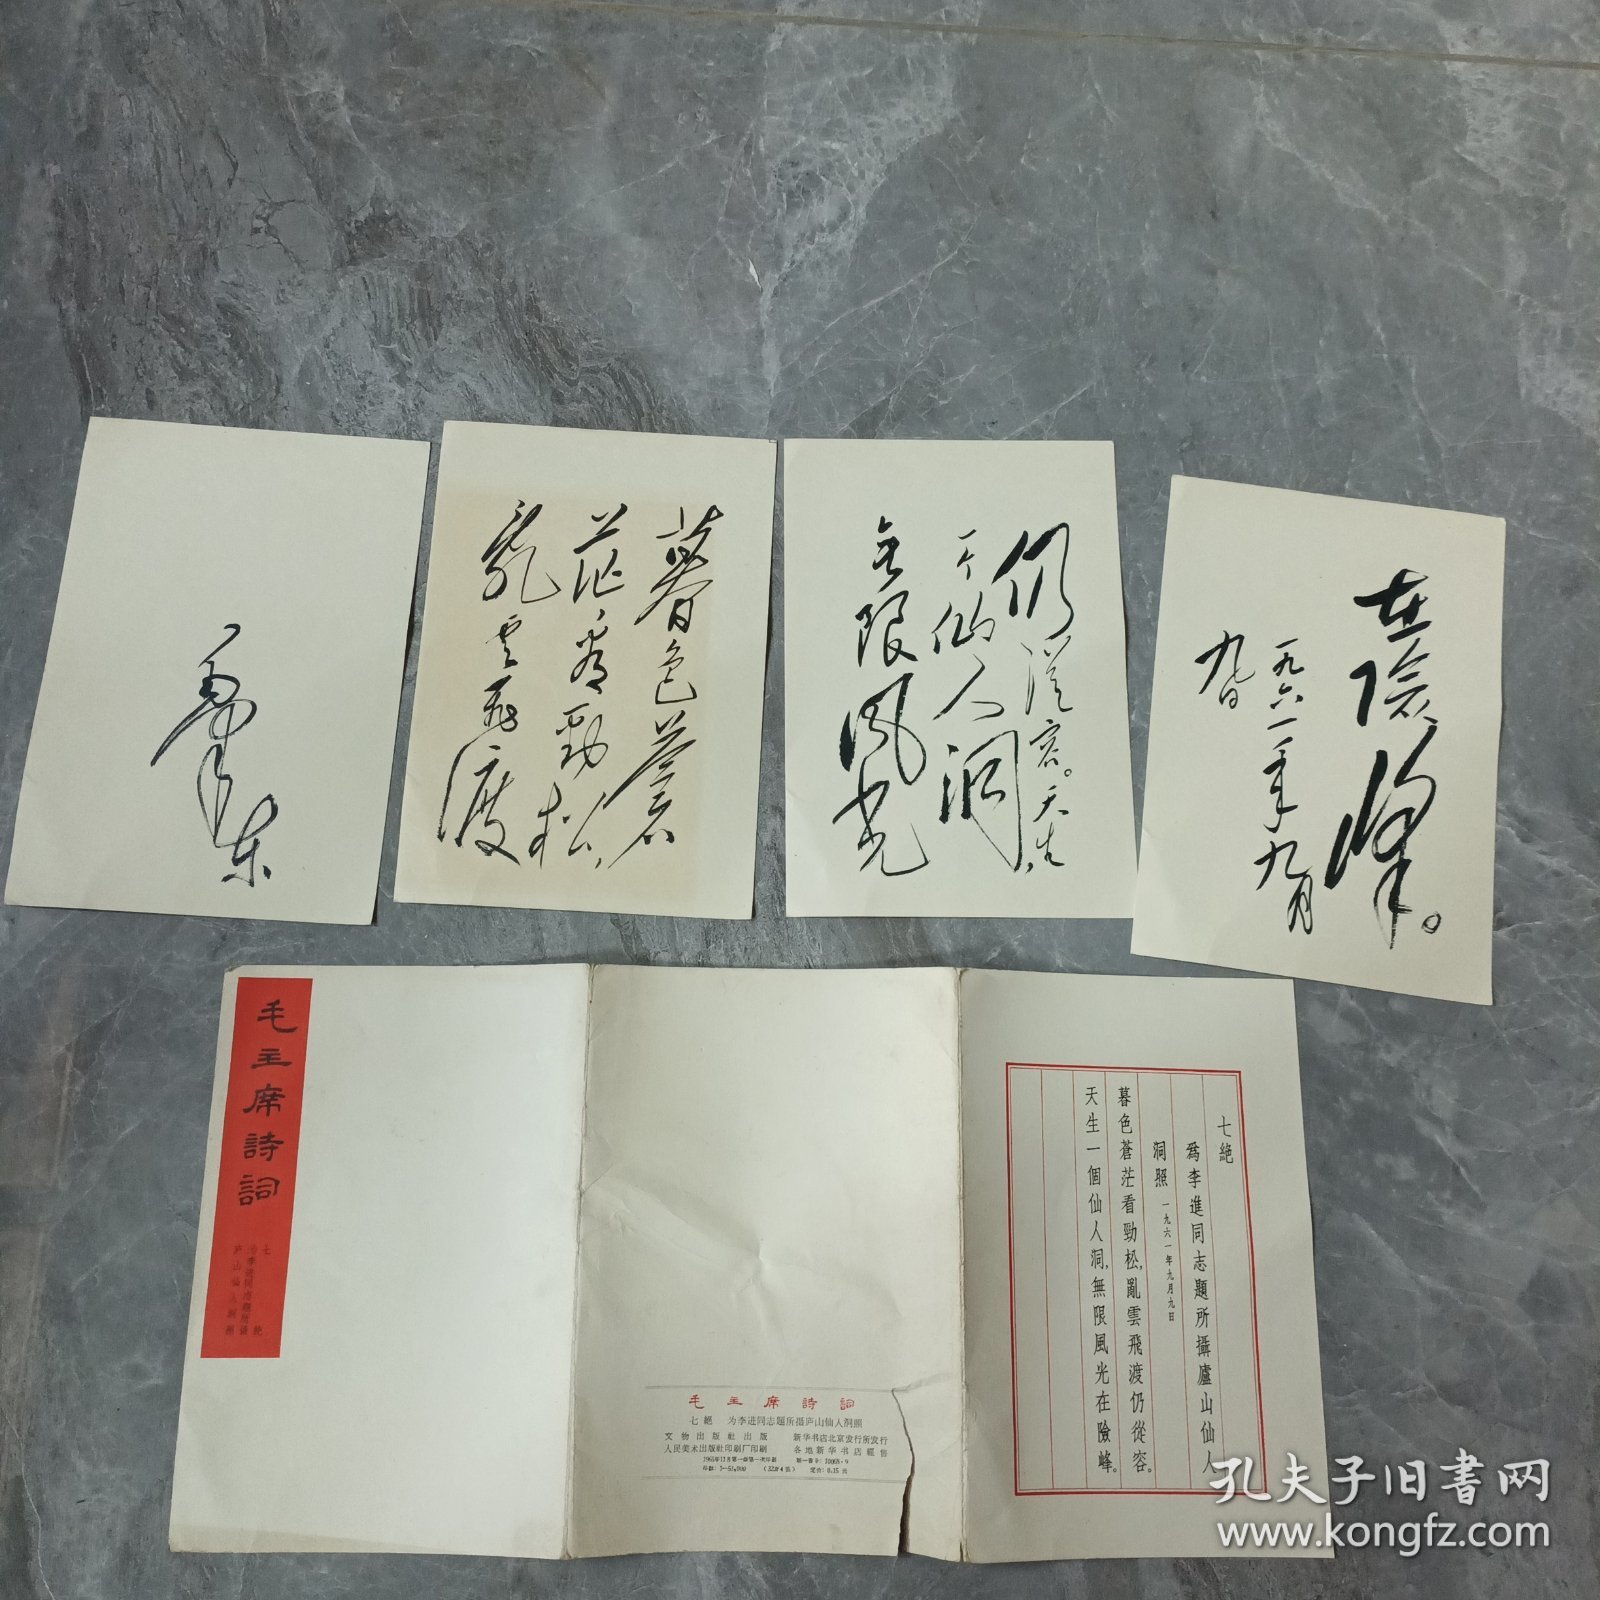 毛澤東
暮色蒼
茫看勁松，
亂雲飛渡
仍從容。天生
一个仙人洞，
無限風光
在險峰。
一九六一年九月
九日
毛主席詩詞
七絕
为李进同志題所攝
庐山仙人洞照
毛主席詩詞
七絕　为李进同志題所攝庐山仙人洞照
文物出版社出版　新华书店北京发行所发行
人民美术出版社印刷厂印刷　各地新华书店經售
定价：0.15元
七絕
爲李進同志題所攝廬山仙人
洞照　一九六一年九月九日
暮色蒼茫看勁松，亂雲飛渡仍從容。
天生一個仙人洞，無限風光在險峰。
孔夫子旧书网
www.kongfz.com